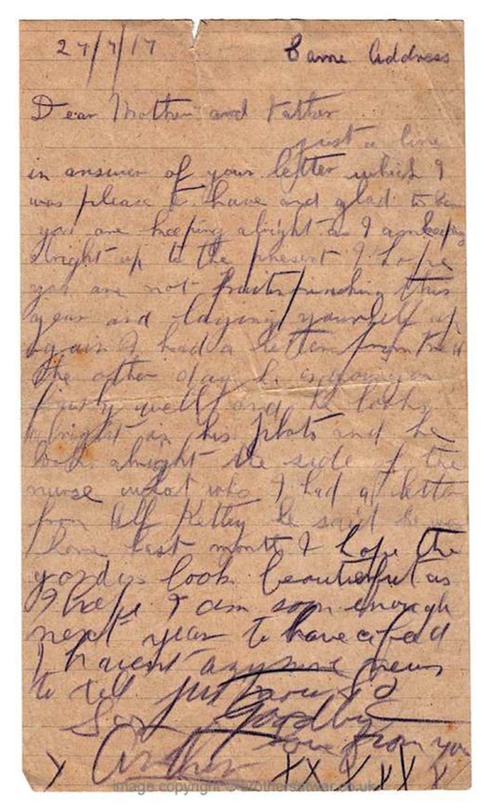 27/7/17 Same Address
Dear Mother and Father
just a line
in answer of your letter which I
was please to have and glad to hear
you are keeping alright as I am keeping
alright up to the present I hope
you are not this
year and laying yourself up
again I had a letter from
the other day he is going on
fairly well and he looks
alright in his photo and he
look alright the side of the
nurse what who I had a letter
from Alf he said he was
home last month I hope the
look beautifull as
I hope I am soon enough
next year to have a
I havent anymore news
to tell just now so
Goodbye
love from your
Son Arthur
x xx x xx x
image copyright © co.uk